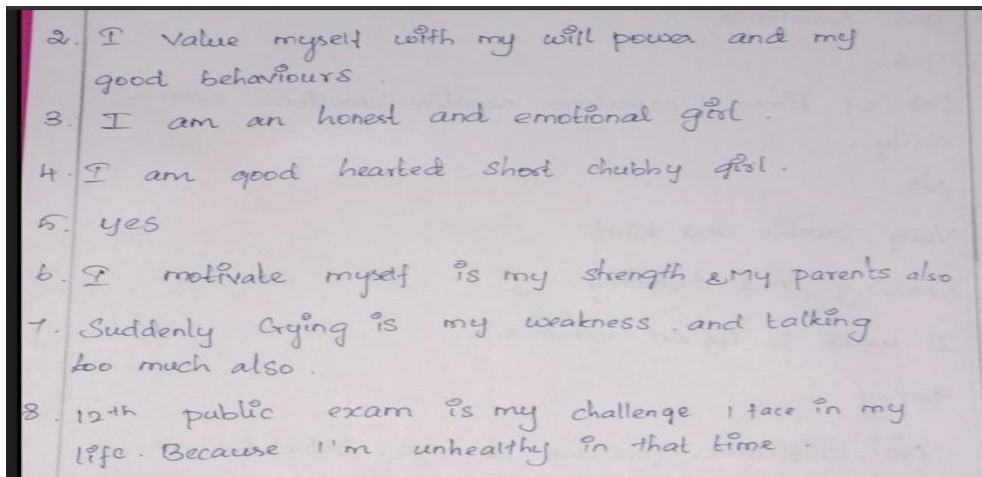 2. I value myself with my will power and my
good behaviours.
3. I am an honest and emotional girl.
4. I am good hearted short chubby girl.
5. yes
6. I motivate myself is my strength & My parents also
7. Suddenly Crying is my weakness. and talking
too much also.
8. 12th public exam is my challenge I face in my
life. Because I'm unhealthy in that time.